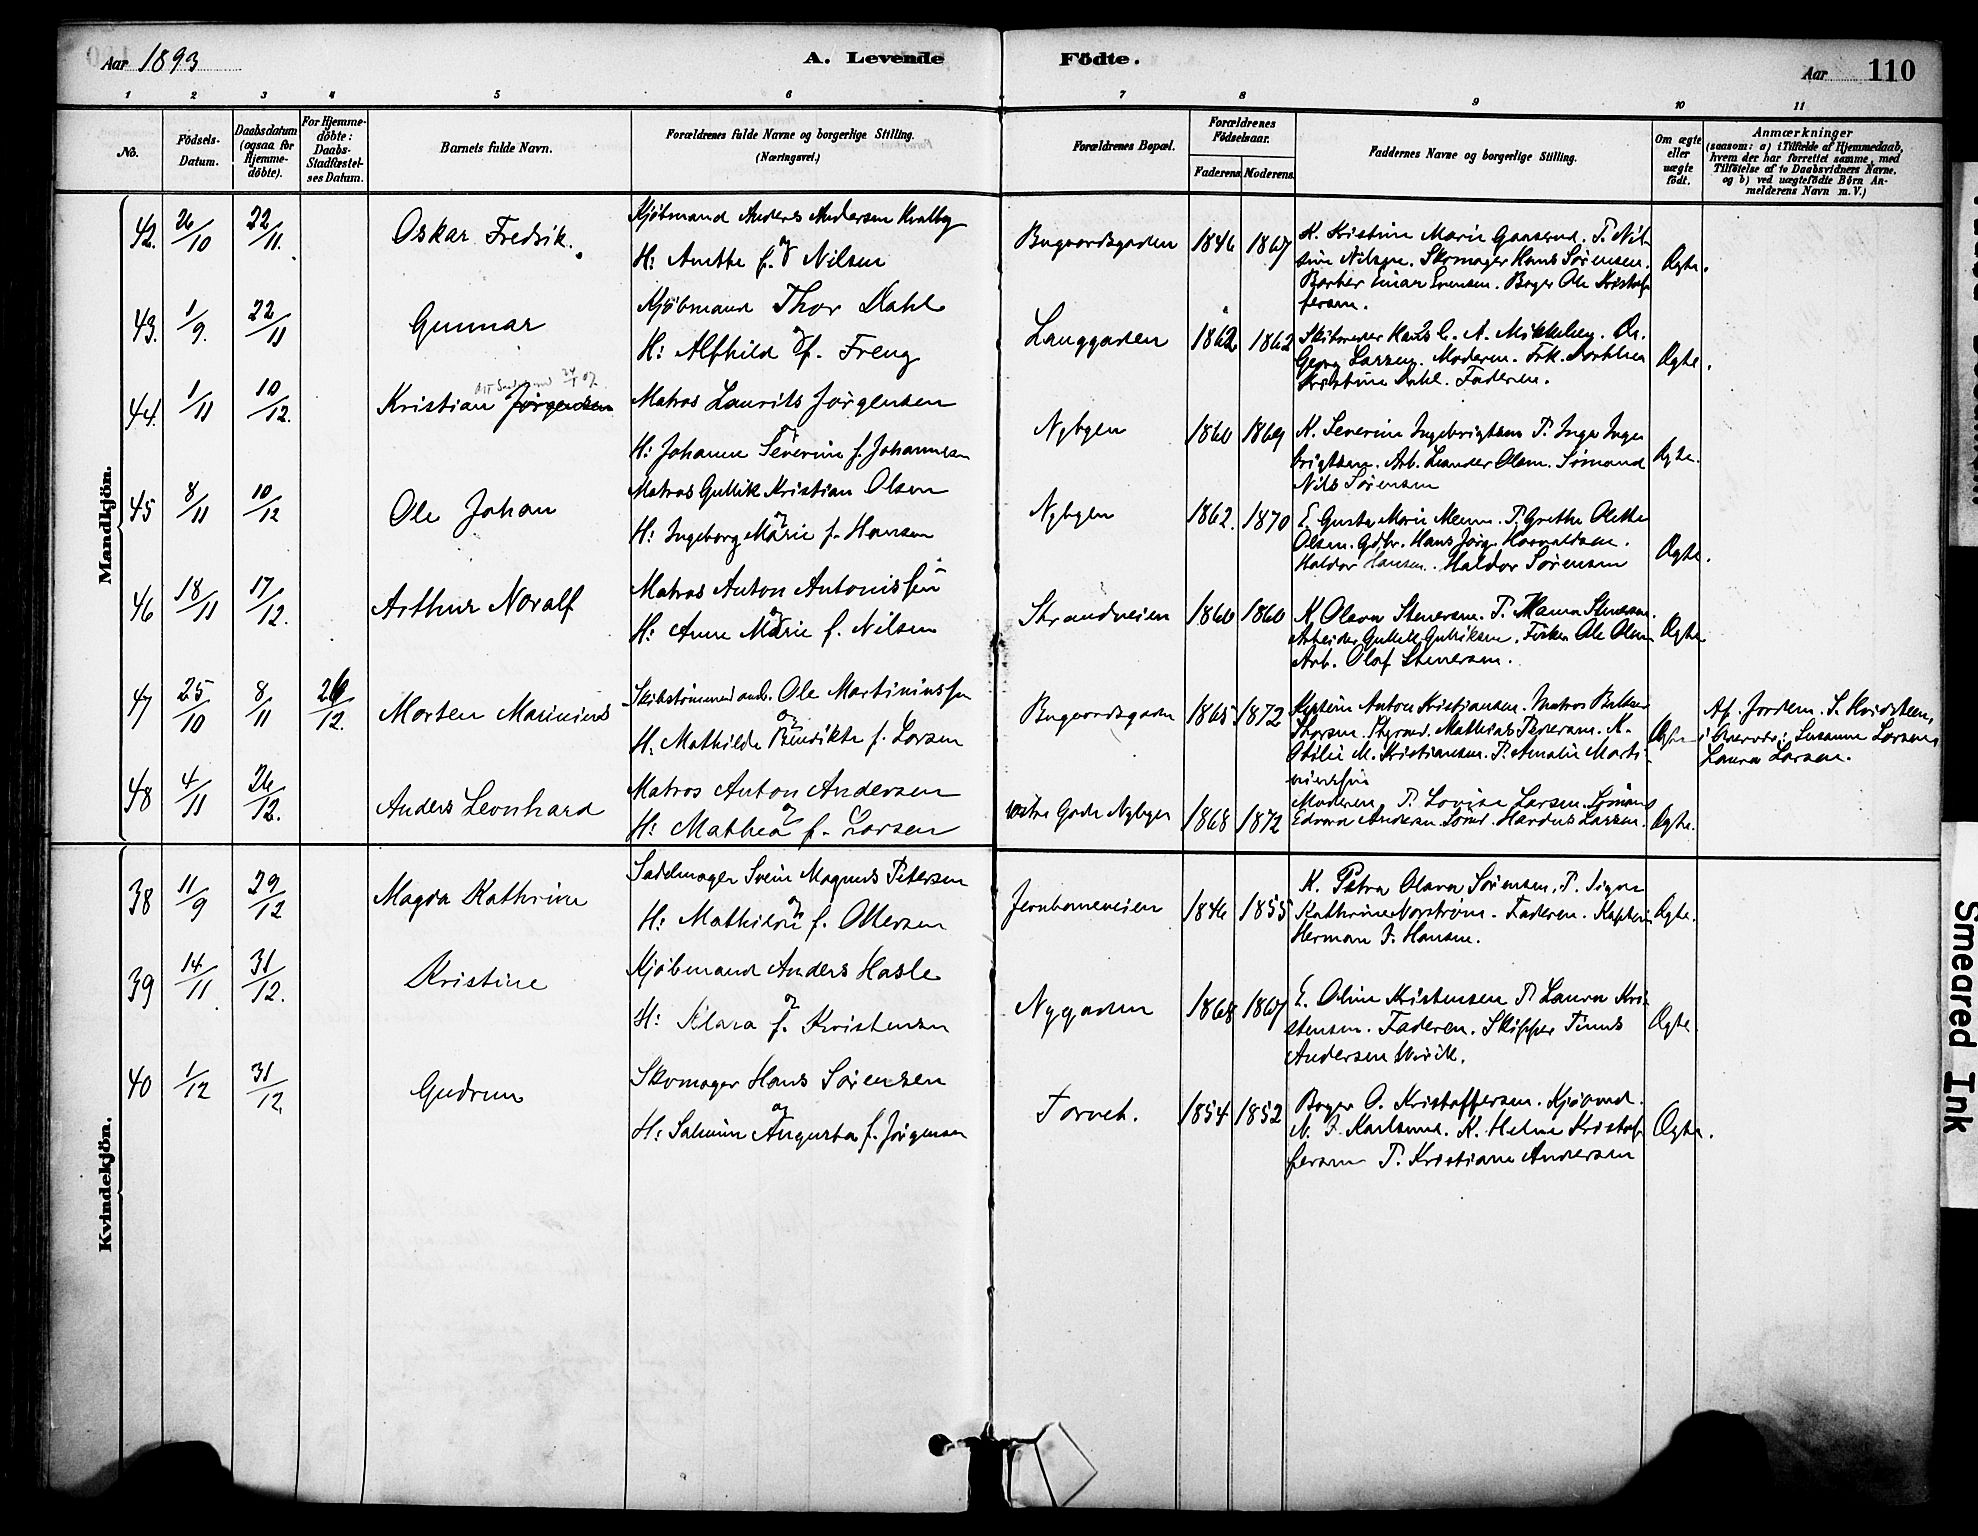 Aar 1893
A. Levende Födte.
Aar 110
1 2 3 4 5 6 7 8 9 10 11
No.
Födsels-Datum.
Daabsdatum (ogsaa for Hjemmedöbte).
For Hjemmedöbte: Daabs-Stadfæstelses Datum.
Barnets fulde Navn.
Forældrenes fulde Navne og borgerlige Stilling.
(Næringsvei.)
Forældrenes Bopæl.
Forældrenes Födselsaar.
Faderens Moderens.
Faddernes Navne og borgerlige Stilling.
Om ægte eller uægte födt.
Anmærkninger
(saasom: a) i Tilfælde af Hjemmedaab,
hvem der har forrettet samme, med
Tilföielse af to Daabsvidners Navne,
og b) ved uægtefödte Börn An-
melderens Navn m. V.)
Mandkjön.
42. 26/10 22/11. Oskar Fredrik. Kjøbmand Anders Andersen Kvalby
H: Anette f. Nilsen
Bugaardsgaden 1846 1867
K. Kristine Marie Gaaserud. P. Nil-
sine Nilsen. Skomager Hans Sørensen.
Barber Einar Evensen. Bager Ole Kristof-
fersen.
Ægte.
43. 1/9. 22/11 Gunnar Kjøbmand Thor Dahl
og
H: Alfhild f. Freng
Langgaden 1862 1862
Georg Larsen. Moderen. Frk. Dorthea
Kristine Dahl. Faderen.
Ægte.
44. 1/11 10/12. Kristian Jørgensen Matros Laurits Jørgensen
H: Johanne Severine f. Johannesen
Nybyen 1860 1869
K. Severine Ingebrigtsen P. Inga Inge-
brigtsen. Arb. Leander Olsen. Sømand
Nils Sørensen
Ægte.
45 8/11 10/12 Ole Johan Matros Gullik Kristian Olsen
og
H: Ingeborg Marie f. Hansen
Nybyen 1862. 1870
P. Grethe Olette
Olsen. Gdbr. Hans Jørg.
Haldor Hansen. Haldor Sørensen
Ægte.
46 18/11 17/12. Arthur Noralf Matros Anton Antonissen
og
H: Anne Marie f. Nilsen
Strandveien 1860 1860
K. Olava Stenersen. P. Stenersen.
Arbeider Gullik Gulliksen. Fisker Ole Olsen
Arb. Olaf Stenersen.
Ægte
47 25/10 8/11 26/12. Morten Marinius Skibstømmermand. Ole Martiniussen
og
H. Mathilde Bendikte f. Larsen
Bugaardsgaden 1865 1872
Kaptein Anton Kristiansen. Matros
K.
Otilie M. Kristiansen. P. Amalie Marti-
niussen
Ægte
Af Jordem. S. Hvidsteen,
Susanne Larsen,
Laura Larsen.
48 4/11 26/12. Anders Leonhard Matros Anton Andersen
og
H: Mathea f. Larsen
Gade Nybyen 1868 1872
Moderen P. Lovise Larsen. Sømand
Edvard Andersen Sømd. Larsen.
Ægte.
Kvindekjön.
38 11/9 29/12 Magda Kathrine Sadelmager Svein Magnus Petersen
og
H: Mathilde f. Ottersen
Jernbaneveien 1846 1855
K. Petra Olava Sørensen. P. Signe
Kathrine Norstrøm. Faderen. Kaptein
Herman J. Hansen.
Ægte.
39 14/11 31/12. Kristine Kjøbmand Anders Hasle
og
H: Klara f. Kristensen
Nygaden 1868 1867
E. Oline Kristensen P. Laura Kri-
stensen. Faderen. Skipper Tinus
Andersen Virik.
Ægte
40 1/12 31/12. Gudrun Skomager Hans Sørensen
og
H: Salmine Augusta f. Jørgensen
Torvet. 1854 1852
Bager O. Kristoffersen. Kjøbmd.
N. J. Karlsen. K. Helene Kristof-
fersen P. Kristiane Andersen
Ægte.
Smeared Ink